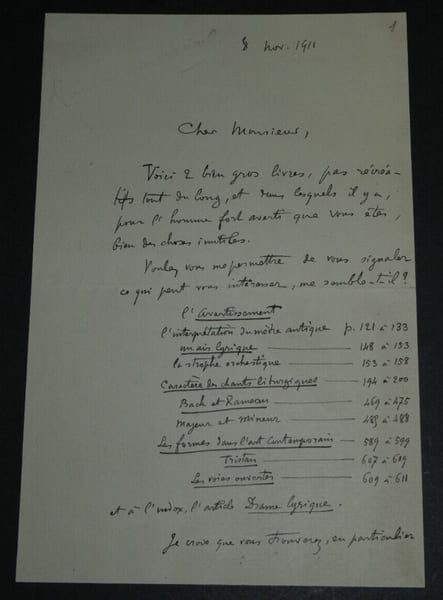 1
8 nov. 1911
Cher Monsieur,
Voici 2 bien gros livres, pas récréa-
tifs tout du long, et dans lesquels il y a,
pour l'homme fort averti que vous êtes,
bien des choses inutiles.
Voulez vous me permettre de vous signaler
ce qui peut vous intéresser, me semble-t-il ?
L'Avertissement
L'interprétation du mètre antique p. 121 à 133
un air lyrique 148 à 153
la strophe orchestique 153 à 158
Caractère des chants liturgiques 194 à 200
Bach et Rameau 469 à 475
Majeur et mineur 485 à 488
Les formes dans l'art contemporain 589 à 599
Tristan 607 à 609
Les voies ouvertes 609 à 611
et à l'index, l'article Drame lyrique.
Je crois que vous trouverez, en particulier